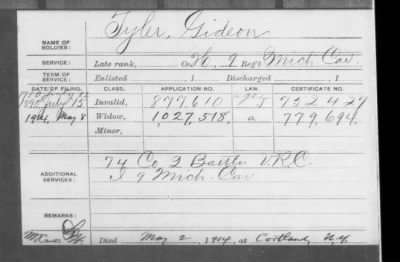 NAME OF SOLDIER: Tyler, Gideon
SERVICE: Late rank, Co. H, 9 Reg't Mich. Cav.
TERM OF SERVICE: Enlisted , 1 Discharged , 1
DATE OF FILING. CLASS. APPLICATION NO. LAW. CERTIFICATE NO.
1890 July 15 Invalid, 877.610 J 752.427
1914, May 8 Widow, 1,027,518. a 779,694.
Minor,
ADDITIONAL SERVICES: 74 Co 2 Batt'n V.R.C.
I 9 Mich. Cav
REMARKS:
Died May 2, 1914, at Cortland N.Y.